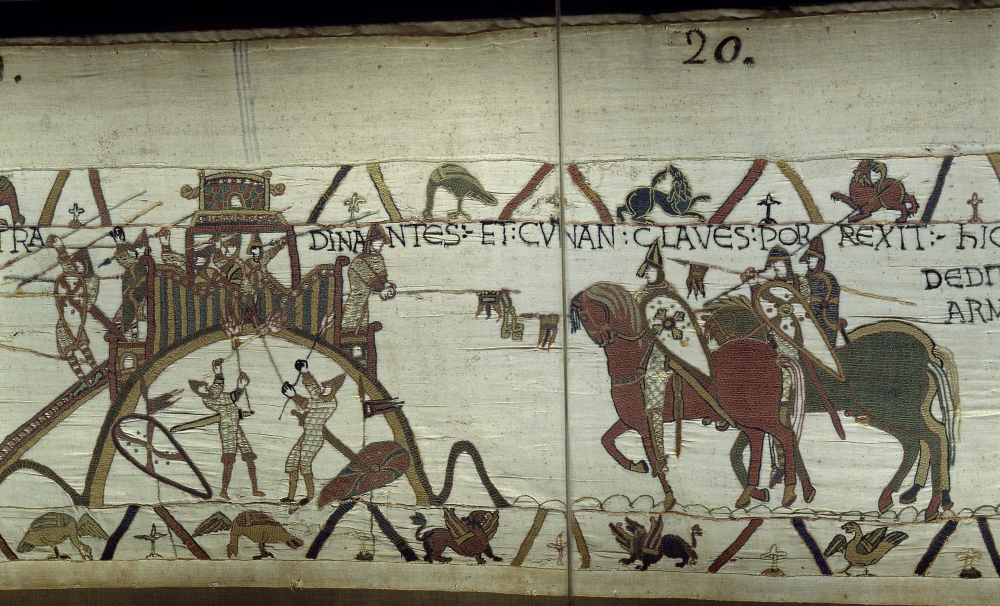 20.
TRA DINANTES:- ET: CVNAN: CLAVES: PORREXIT:- hIC
DEDIT
ARM